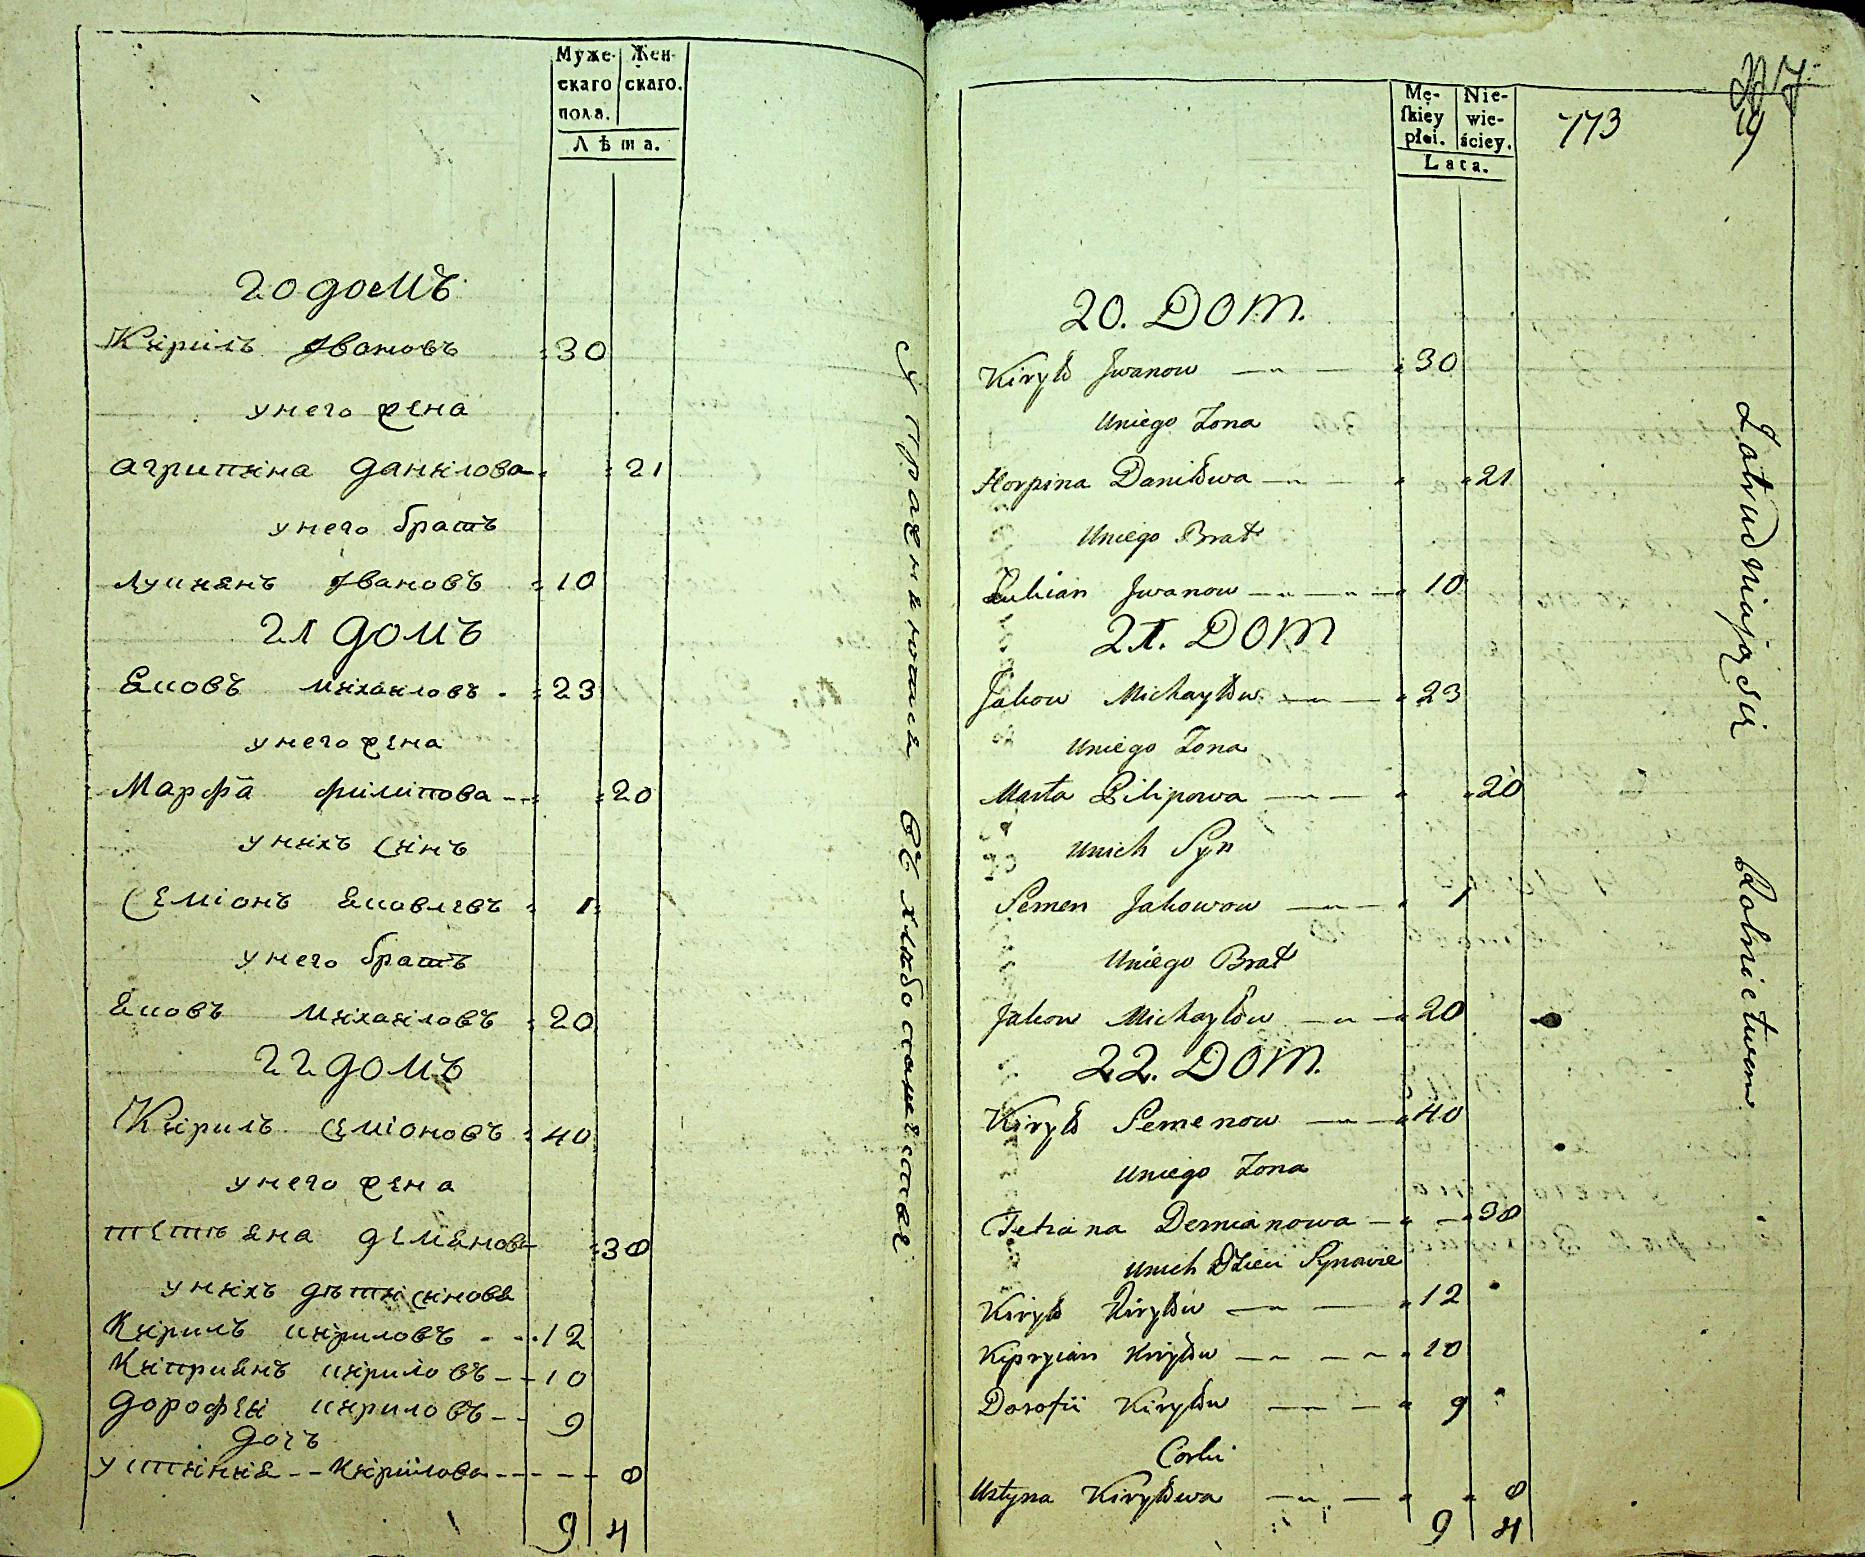 Муже-
скаго
пола.
Жен-
скаго.
Лѣта.
20 домъ
Кирилъ Ивановъ 30
у него жена
Агрипина Данилова 21
у него братъ
Лукиянъ Ивановъ 10
21 домъ
Яковъ Михаиловъ 23
у него жена
Марфа Филипова 20
у нихъ синъ
Семіонъ Яковлевъ 1
у него братъ
Яковъ Михаиловъ 20
22 домъ
Кирилъ Семіоновъ 40
у него жена
Тетіяна Демянова 30
у нихъ дѣти синовя
Кирилъ Кириловъ 12
Киприянъ Кириловъ 10
Дорофей Кириловъ 9
дочъ
Устиния Кирилова 8
9 4
Упражняютися въ хлебопашествѣ
Mę-
skiey
płci.
Nie-
wie-
ściey.
Lata.
773
20. DOM.
Kiryło Jwanow 30
Uniego Żona
Horpina Daniłowa 21
Uniego Brat
Łukian Jwanow 10
21. DOM
Jakow Michayłow 23
Uniego Żona
Marta Pilipowa 20
Unich Syn
Semen Jakowow 1
Uniego Brat
Jakow Michayłow 20
22. DOM.
Kiryło Semenow 40
Uniego Żona
Tetiana Demianowa 30
Unich Dzieci Synowie
Kiryło Kiryłow 12
Kipryian Kiryłow 10
Dorofii Kiryłow 9
Corki
Ustyna Kiryłowa 8
9 4
Zatrudniają się Rolnictwem